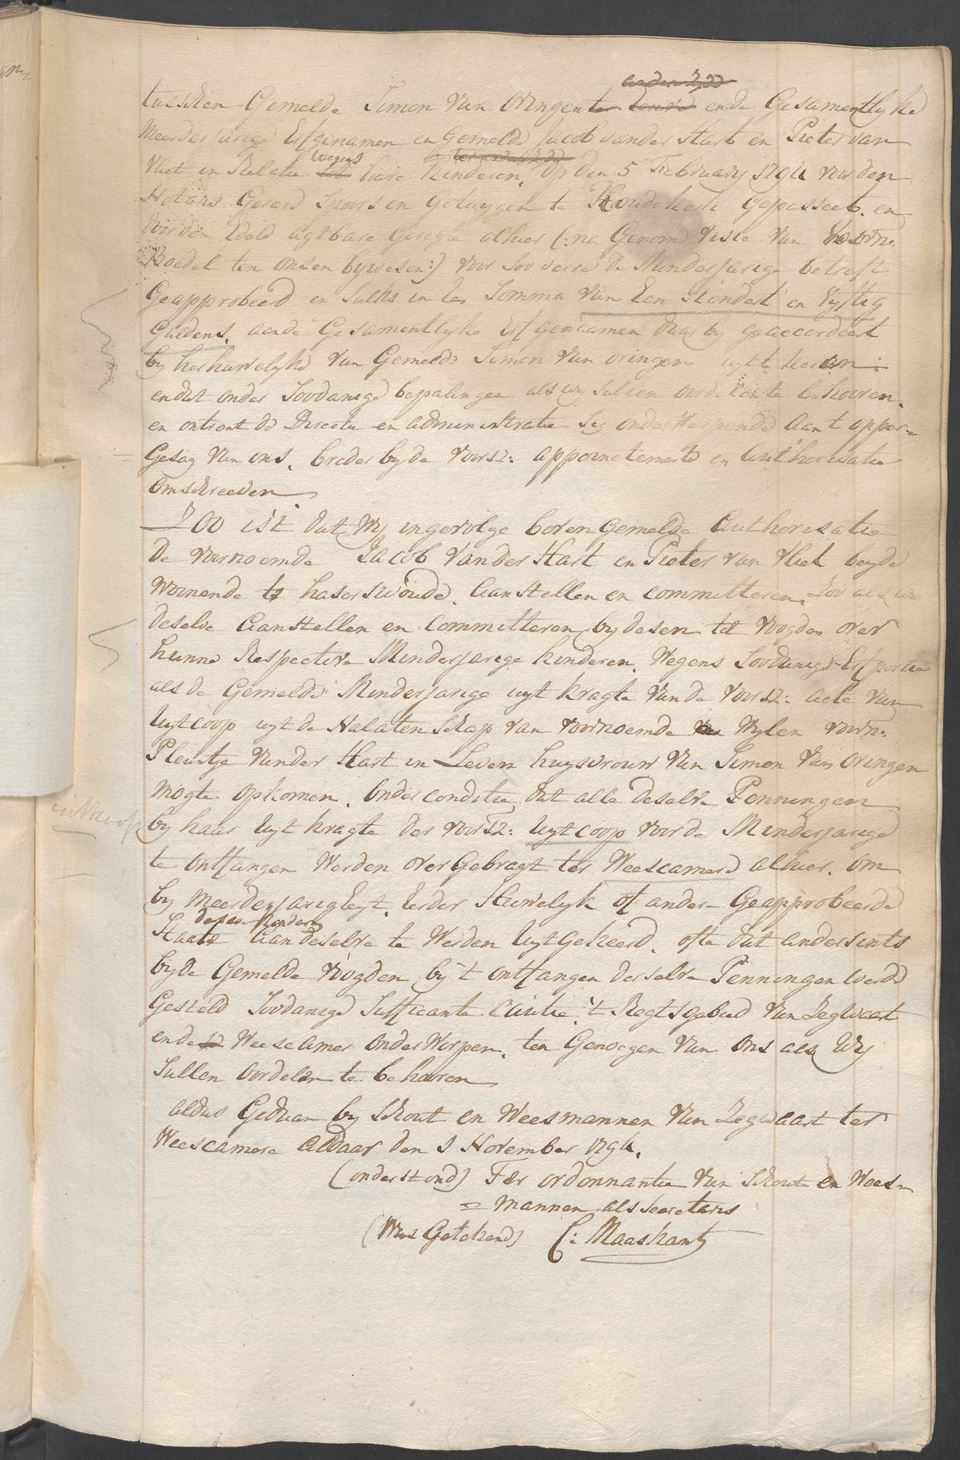 tusschen Gemelde Simon van Oringen ter ende Gesamentlyke
Meerderjarige Erfgenamen en Gemelde Jacob vander Hart en Pieter van
Vliet in Relatie wegens hare kinderen, op den 5 February 1794 voor den
Notaris Gerard en Getuygen te Gepasseert, en
voor den Edele agtbare Geregte alhier (:na Genome visie van den
Boedel ten onsen bywesen:) voor soo verre de Minderjarige betreft
Geapprobeerd en Sulks in ter Somma van Een Hondert en Vyftig
Guldens, aan de Gesamentlyke Erfgenaamen daar by geaccordeert
by herhuwelyke van Gemelde Simon van oringen uyt te keeren
en dat onder Soodanige bepalingen als wy sullen oordeelen te behooren,
en ontrent de Directie en administratie sig onderwerpende aan 't opper=
Gesag van ons, breder by de voorsz: appoinctemente en Authorisatie
omschreeven
Zoo ist dat Wy ingevolge bovengemelde Authorisatie
de voornoemde Jacob Vander Hart en Pieter van Vliet beyde
Woonende te haserswoude, Aanstellen en committeren, Soo als wy
deselve Aanstellen en Committeren by desen tot voogden over
hunne Respective Minderjarige kinderen, Wegens Soodanige Erfportie
als de Gemelde Minderjarige uyt kragte van de voorsz: acte van
Uytcoop uyt de Nalatenschap van voornoemde Wylen voorn:
Pleuntje Vander Hart in Leven huysvrouw van Simon van oringen
mogte opkomen, onder conditie, dat alle deselve Penningen
uitkoop
by haar uyt kragte der voorsz: Uytcoop voor de Minderjarige
te ontfangen Werden over Gebragt ter Weescamere alhier, om
by Meerderjarigheyt, Eerder Huwelyk of andere Geapprobeerde
Staate Aan deselve te Werden Uytgekeerd, ofte dat andersints
by de Gemelde Voogden by 't ontfangen derselve Penningen werde
Gesteld Soodanige Sufficante Cautie 't Regtsgebied van Zegwaart
ende Weescamer onder Worpen, ten Genoegen van ons als Wy
Sullen oordelen te behooren
aldus Gedaan by Schout en Weesmannen van Zegwaart ter
Weescamere aldaar den 1 November 1794.
(onderstond) Ter ordonnantie van Schout en Wees=
= mannen als secretaris
(Was Getekend) C: Maaskant